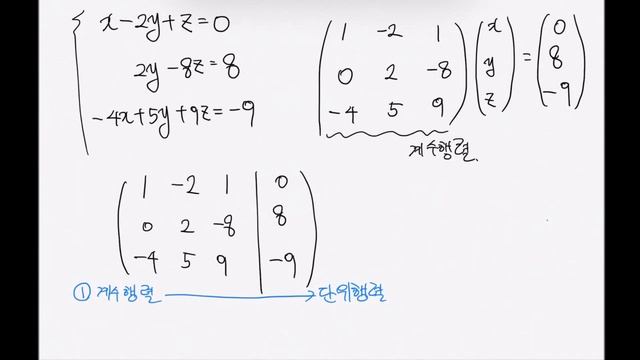 x-2y+z=0
2y-8z=8
-4x+5y+9z=-9
1 -2 1 x 0
0 2 -8 y = 8
-4 5 9 z -9
계수행렬.
1 -2 1 0
0 2 -8 8
-4 5 9 -9
① 계수행렬 → 단위행렬